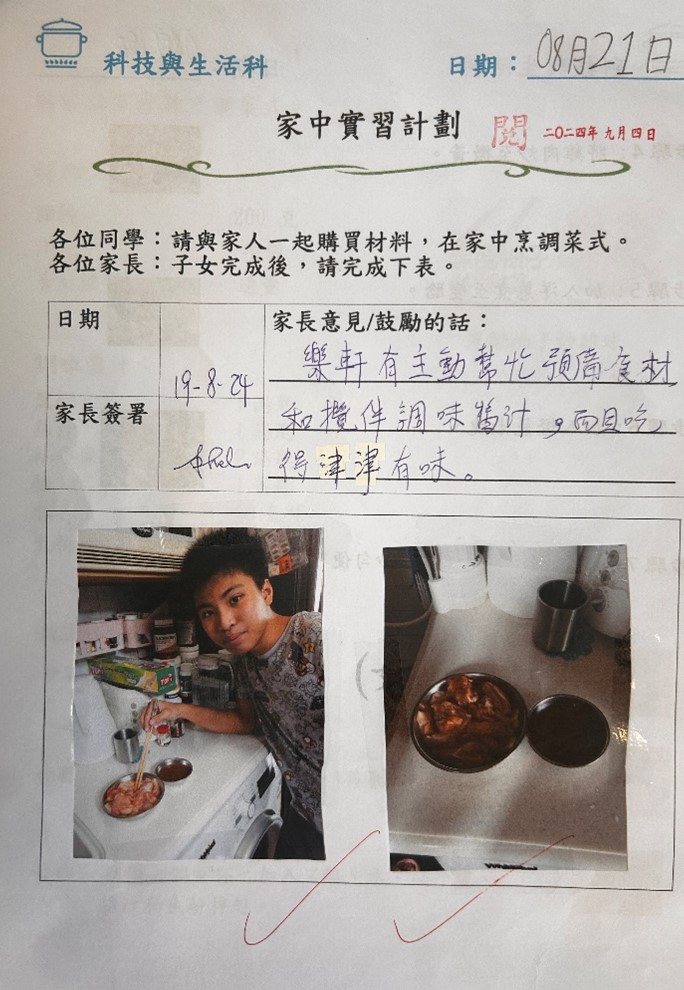 科技與生活科
日期：08月21日
家中實習計劃
閱 二〇二四年 九月 四日
各位同學：請與家人一起購買材料，在家中烹調菜式。
各位家長：子女完成後，請完成下表。
日期
19-8-24
家長簽署
家長意見/鼓勵的話：
樂軒有主動幫忙預備食材
和攪伴調味醬汁，而且吃
得津津有味。